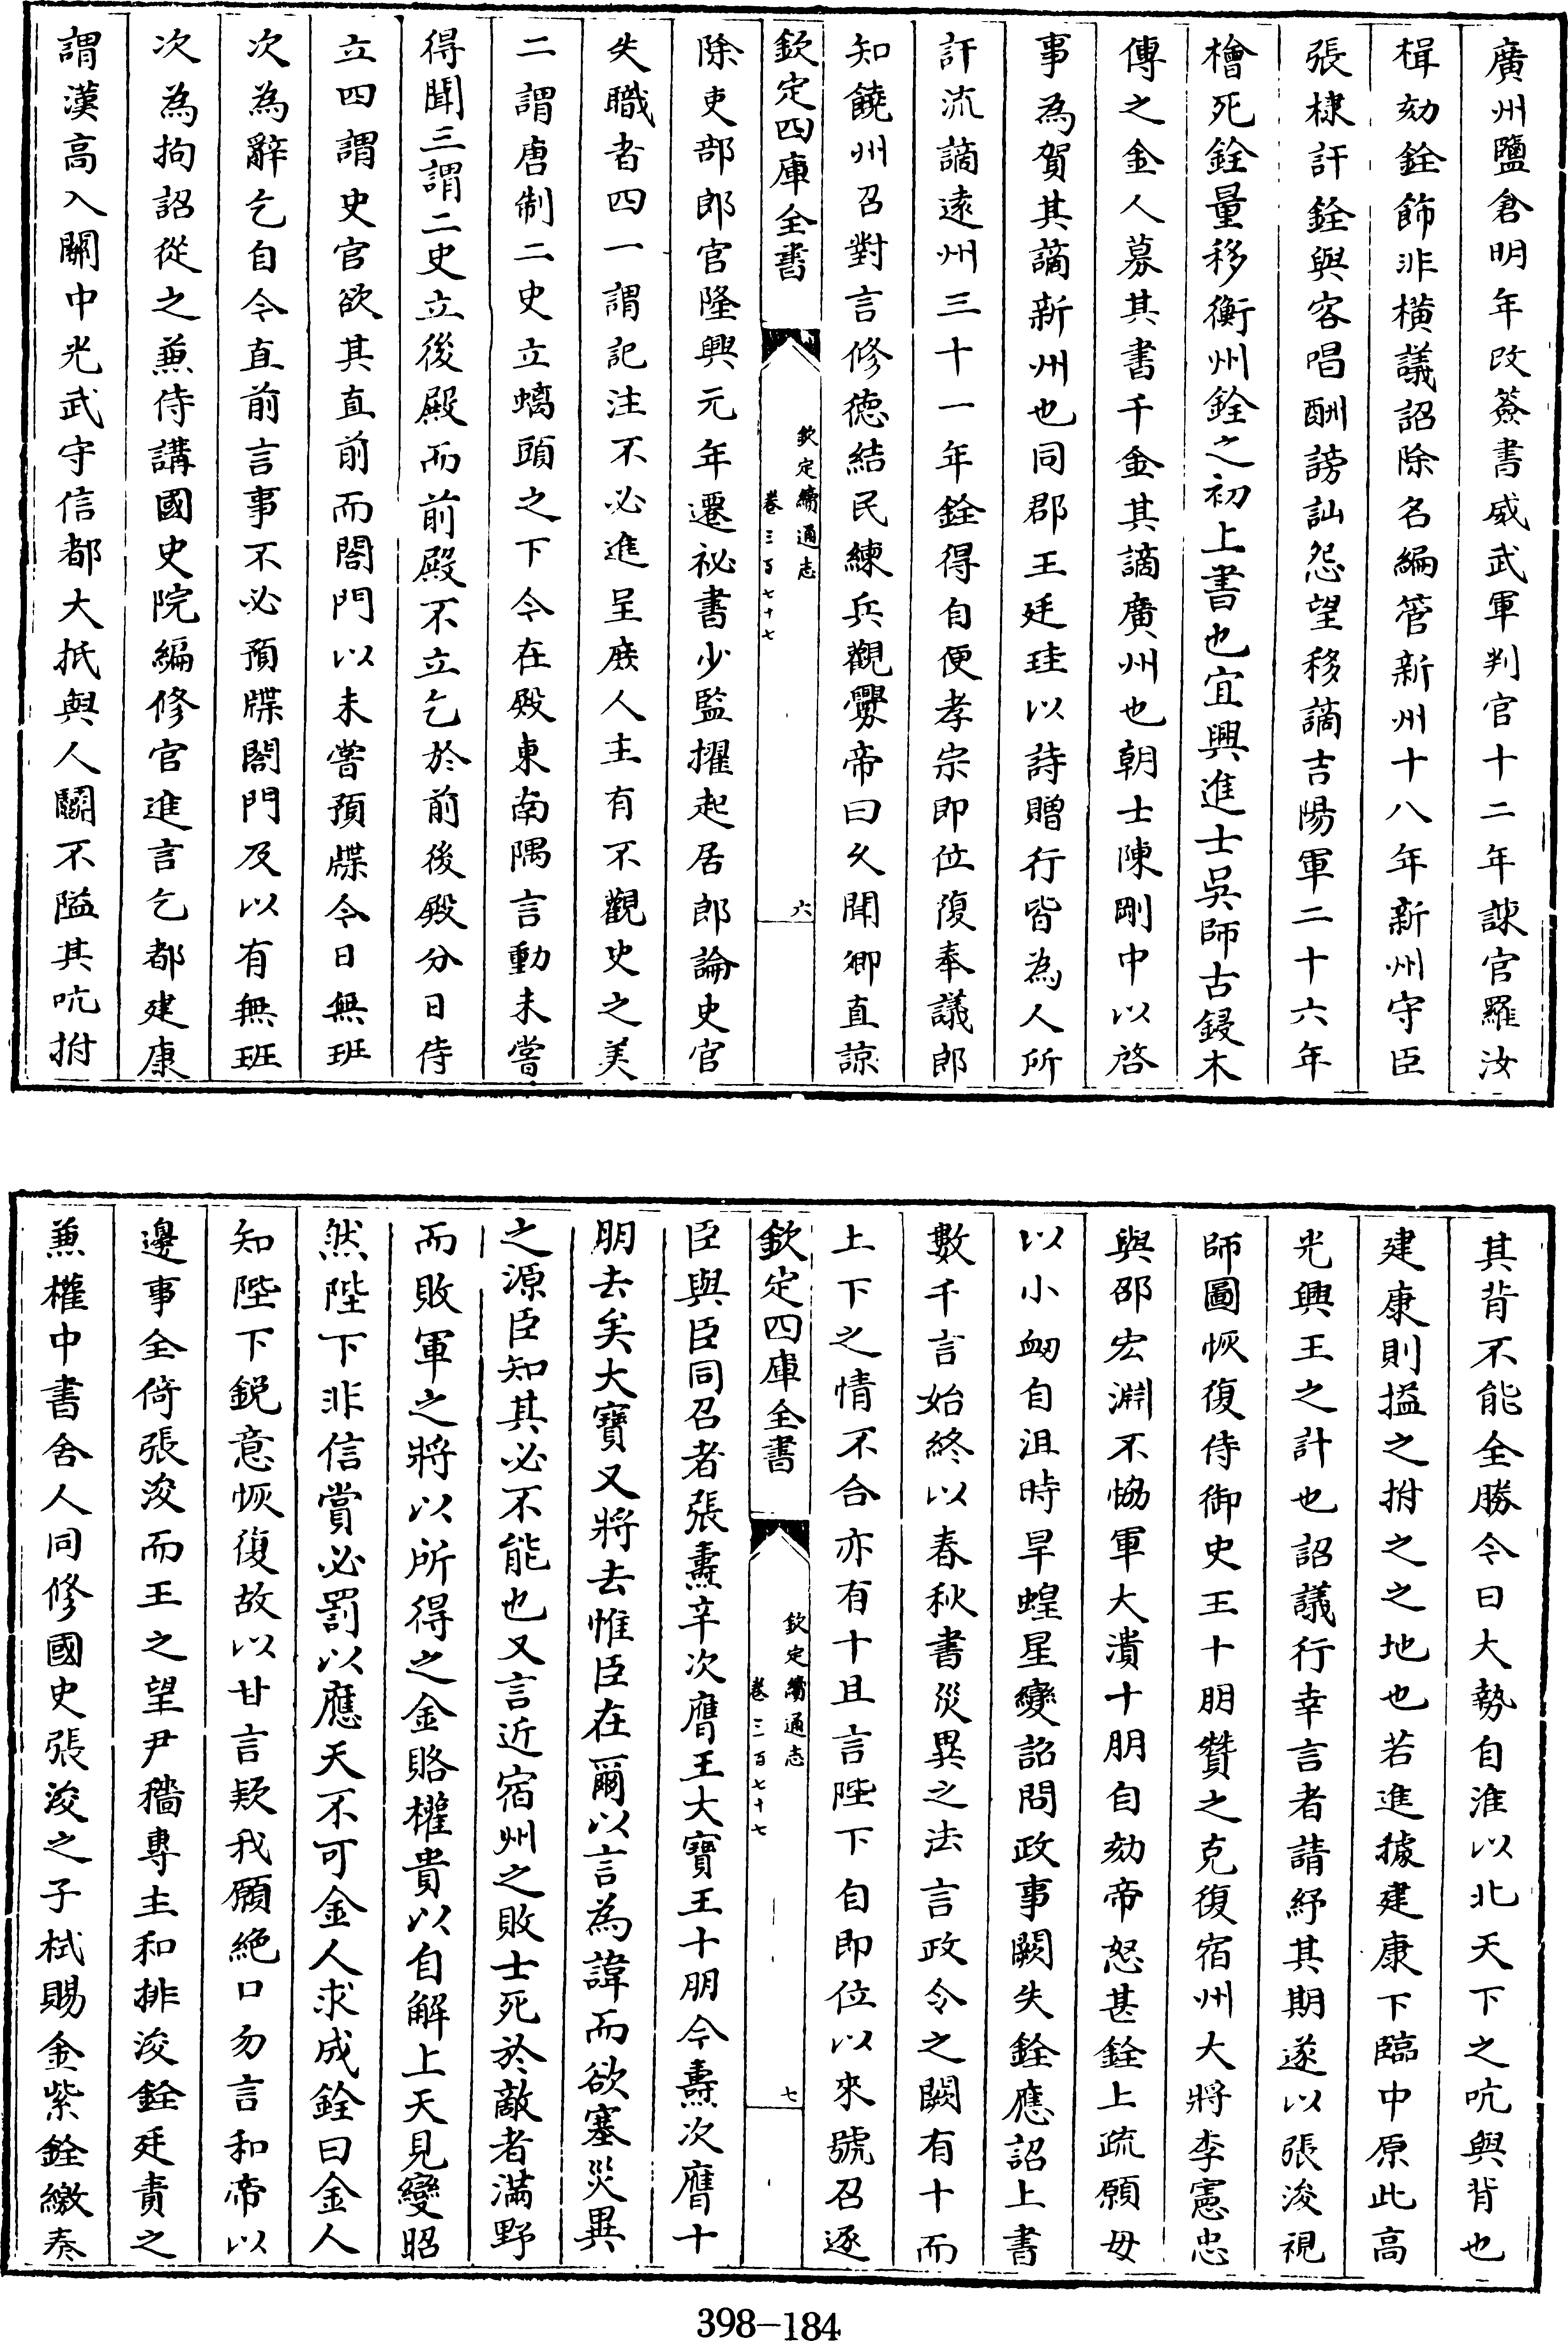 廣州鹽倉明年改簽書威武軍判官十二年諫官羅汝
楫劾銓飾非橫議詔除名編管新州十八年新州守臣
張棣訐銓與客唱酬謗訕怨望移謫吉陽軍二十六年
檜死銓量移衡州銓之初上書也宜興進士吳師古鋟木
傳之金人募其書千金其謫廣州也朝士陳剛中以啓
事為賀其謫新州也同郡王廷珪以詩贈行皆為人所
訐流謫遠州三十一年銓得自便孝宗即位復奉議郎
知饒州召對言修德結民練兵觀釁帝曰久聞卿直諒
欽定四庫全書
欽定續通志
卷三百七十七
六
除吏部郎官隆興元年遷祕書少監擢起居郎論史官
失職者四一謂記注不必進呈庶人主有不觀史之美
二謂唐制二史立螭頭之下今在殿東南隅言動未嘗
得聞三謂二史立後殿而前殿不立乞於前後殿分日侍
立四謂史官欲其直前而閤門以未嘗預牒今日無班
次為辭乞自今直前言事不必預牒閤門及以有無班
次為拘詔從之兼侍講國史院編修官進言乞都建康
謂漢高入關中光武守信都大抵與人鬬不隘其吭拊
其背不能全勝今日大勢自淮以北天下之吭與背也
建康則搤之拊之之地也若進據建康下臨中原此高
光興王之計也詔議行幸言者請紓其期遂以張浚視
師圖恢復侍御史王十朋贊之克復宿州大將李憲忠
與邵宏淵不恊軍大潰十朋自劾帝怒甚銓上疏願毋
以小衂自沮時旱蝗星變詔問政事闕失銓應詔上書
數千言始終以春秋書災異之法言政令之闕有十而
上下之情不合亦有十且言陛下自即位以來號召逐
欽定四庫全書
欽定續通志
卷三百七十七
七
臣與臣同召者張燾辛次膺王大寶王十朋今燾次膺十
朋去矣大寶又將去惟臣在爾以言為諱而欲塞災異
之源臣知其必不能也又言近宿州之敗士死於敵者滿野
而敗軍之將以所得之金賂權貴以自解上天見變昭
然陛下非信賞必罰以應天不可金人求成銓曰金人
知陛下鋭意恢復故以甘言欵我願絕口勿言和帝以
邊事全倚張浚而王之望尹穡專主和排浚銓廷責之
兼權中書舍人同修國史張浚之子栻賜金紫銓繳奏
398-184